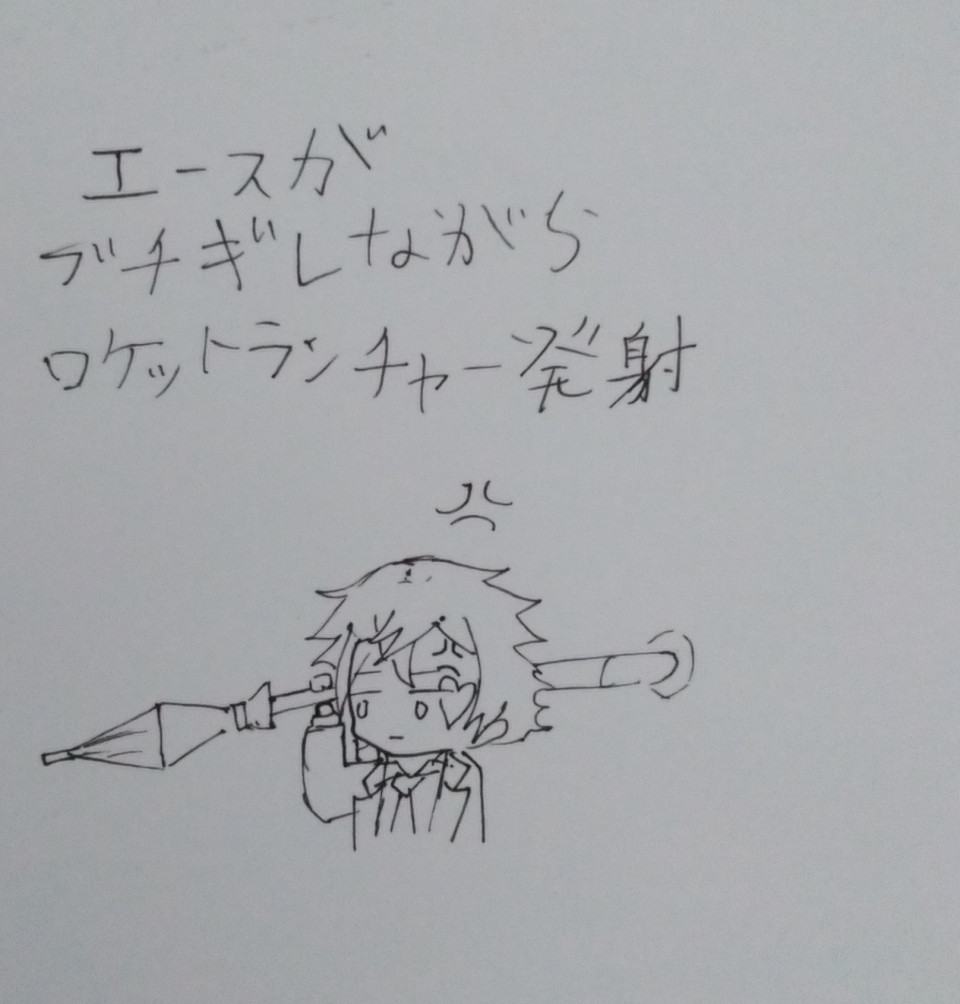 エースが
ブチギレながら
ロケットランチャー発射